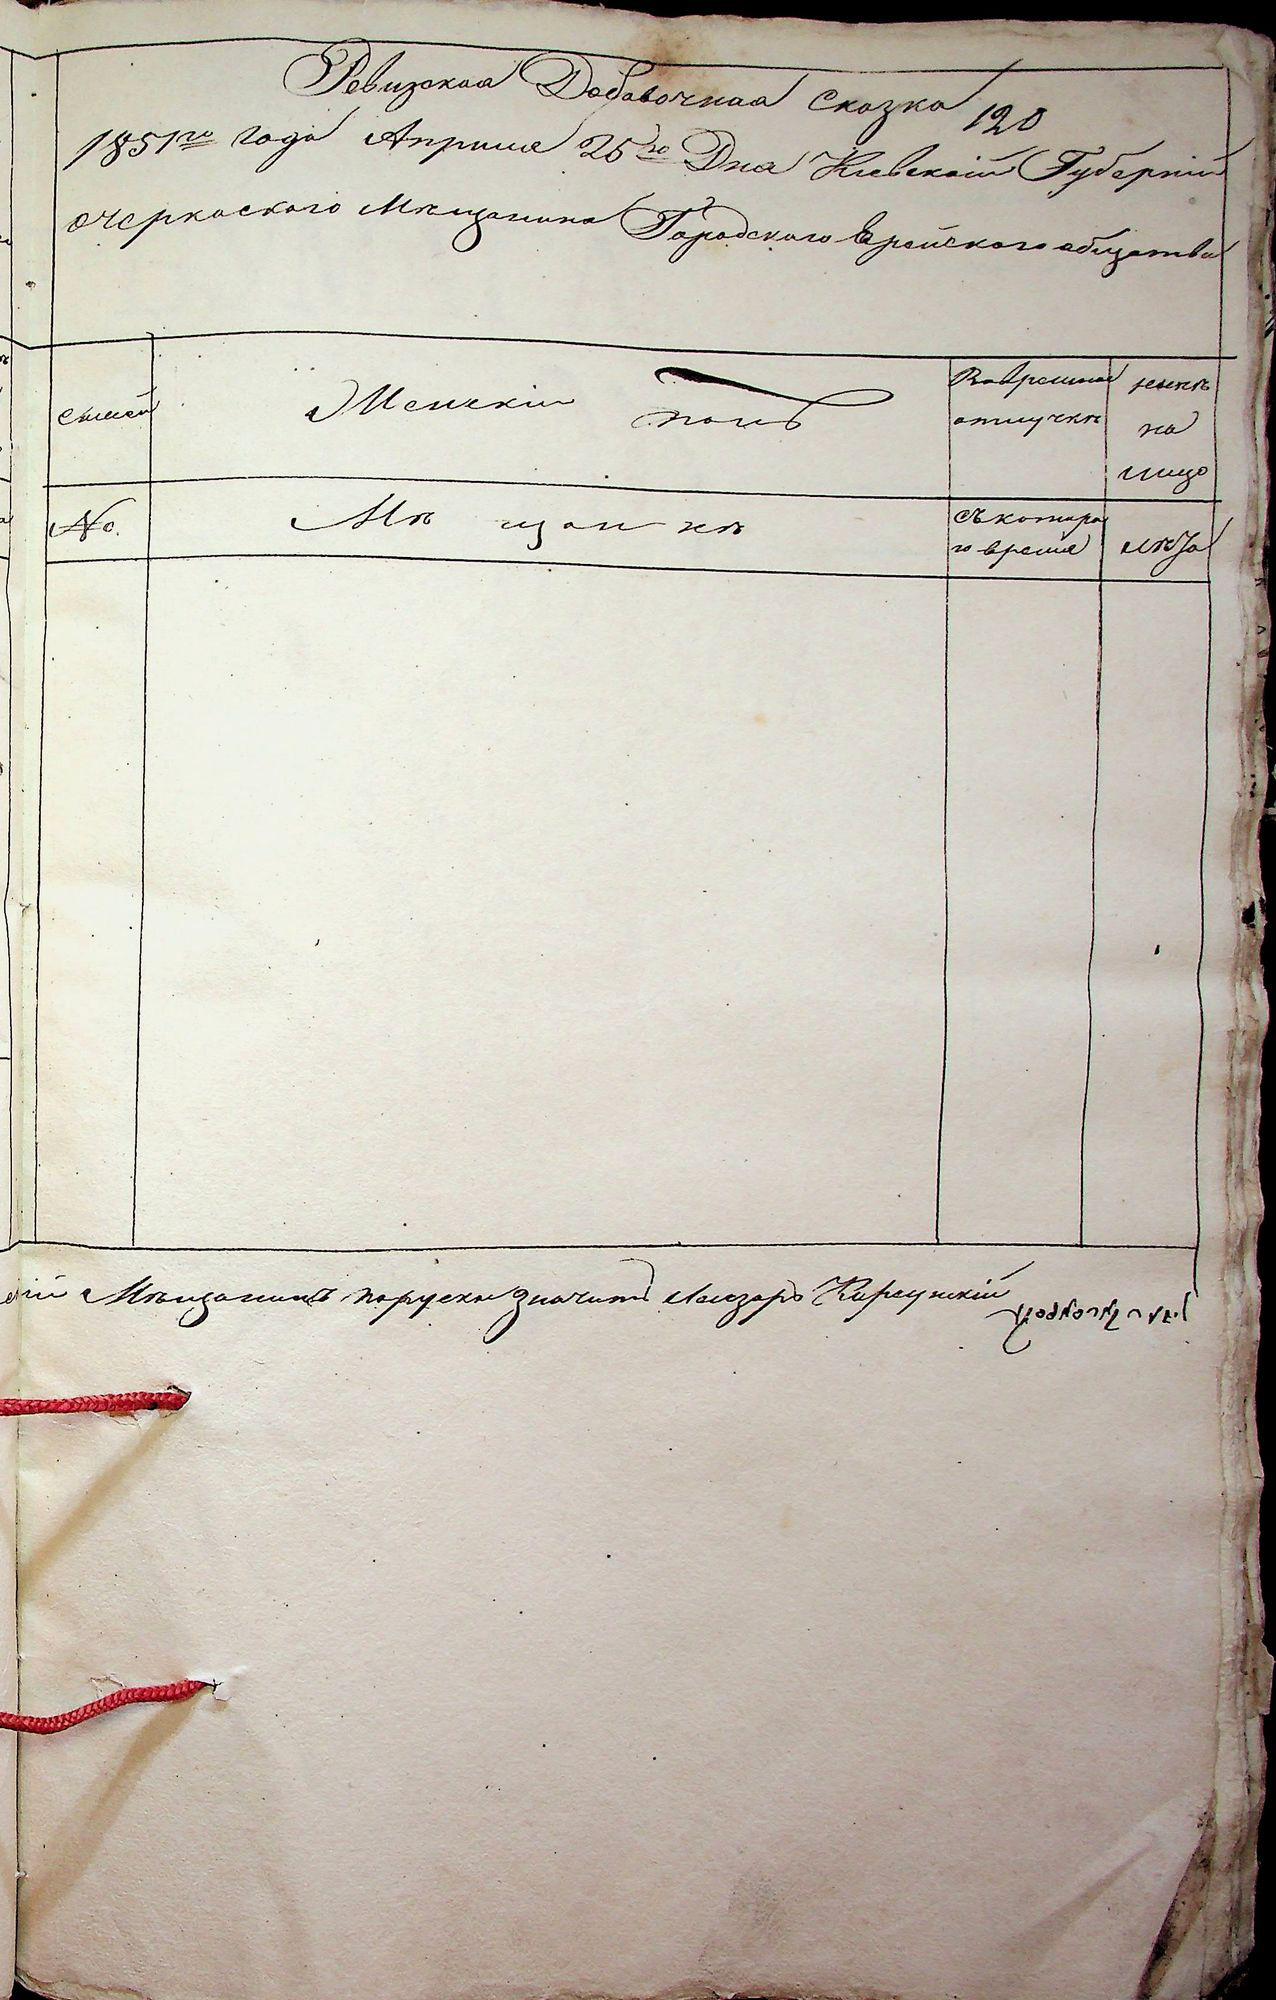 Ревизская Добавочная Сказка
120
1851го года Априля 25го Дня Киевской Губерніи
очеркаского Мѣщанина Городского Еврейского общества
семей
Женскій полъ
Вовременной отлучкѣ
нынѣ на лицо
№.
Мѣщанкѣ
Съ котора го время
лѣта
Мѣщанинъ поруски значитъ Лейзаръ Кирсунскій